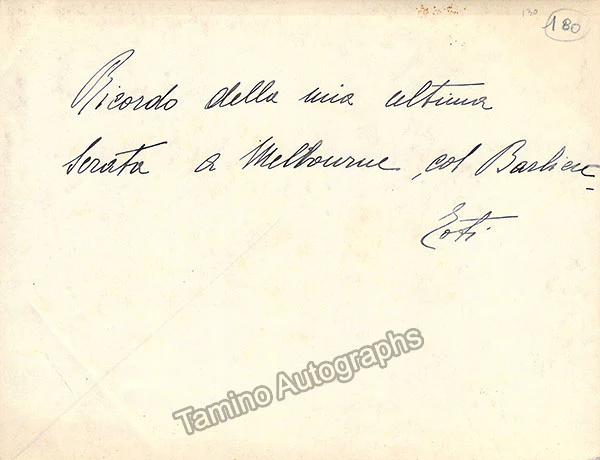 130
180
Ricordo della mia ultima
Serata a Melbourne, col Barbiere
Toti
Tamino Autographs